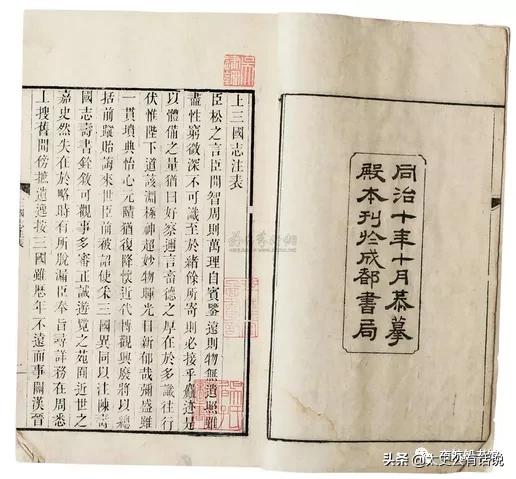 同治十年十月恭摹
殿本刊於成都書局
上三國志注表
臣松之言臣聞智周則萬理自賓鑒遠則物無遺照雖
盡性窮微深不可識至於緒餘所寄則必接乎麤迹是
以體備之量猶曰好察邇言畜德之厚在於多識往行
伏惟陛下道該淵極神超妙物暉光日新郁哉彌盛雖
一貫墳典怡心元賾猶復降懷近代博觀興廢將以總
括前蹤貽誨來世臣前被詔使采三國異同以注陳壽
國志壽書銓敘可觀事多審正誠遊覽之苑囿近世之
嘉史然失在於略時有所脫漏臣奉旨尋詳務在周悉
上搜舊聞傍摭遺逸按三國雖歷年不遠而事關漢晉
头条 @太史公有话说